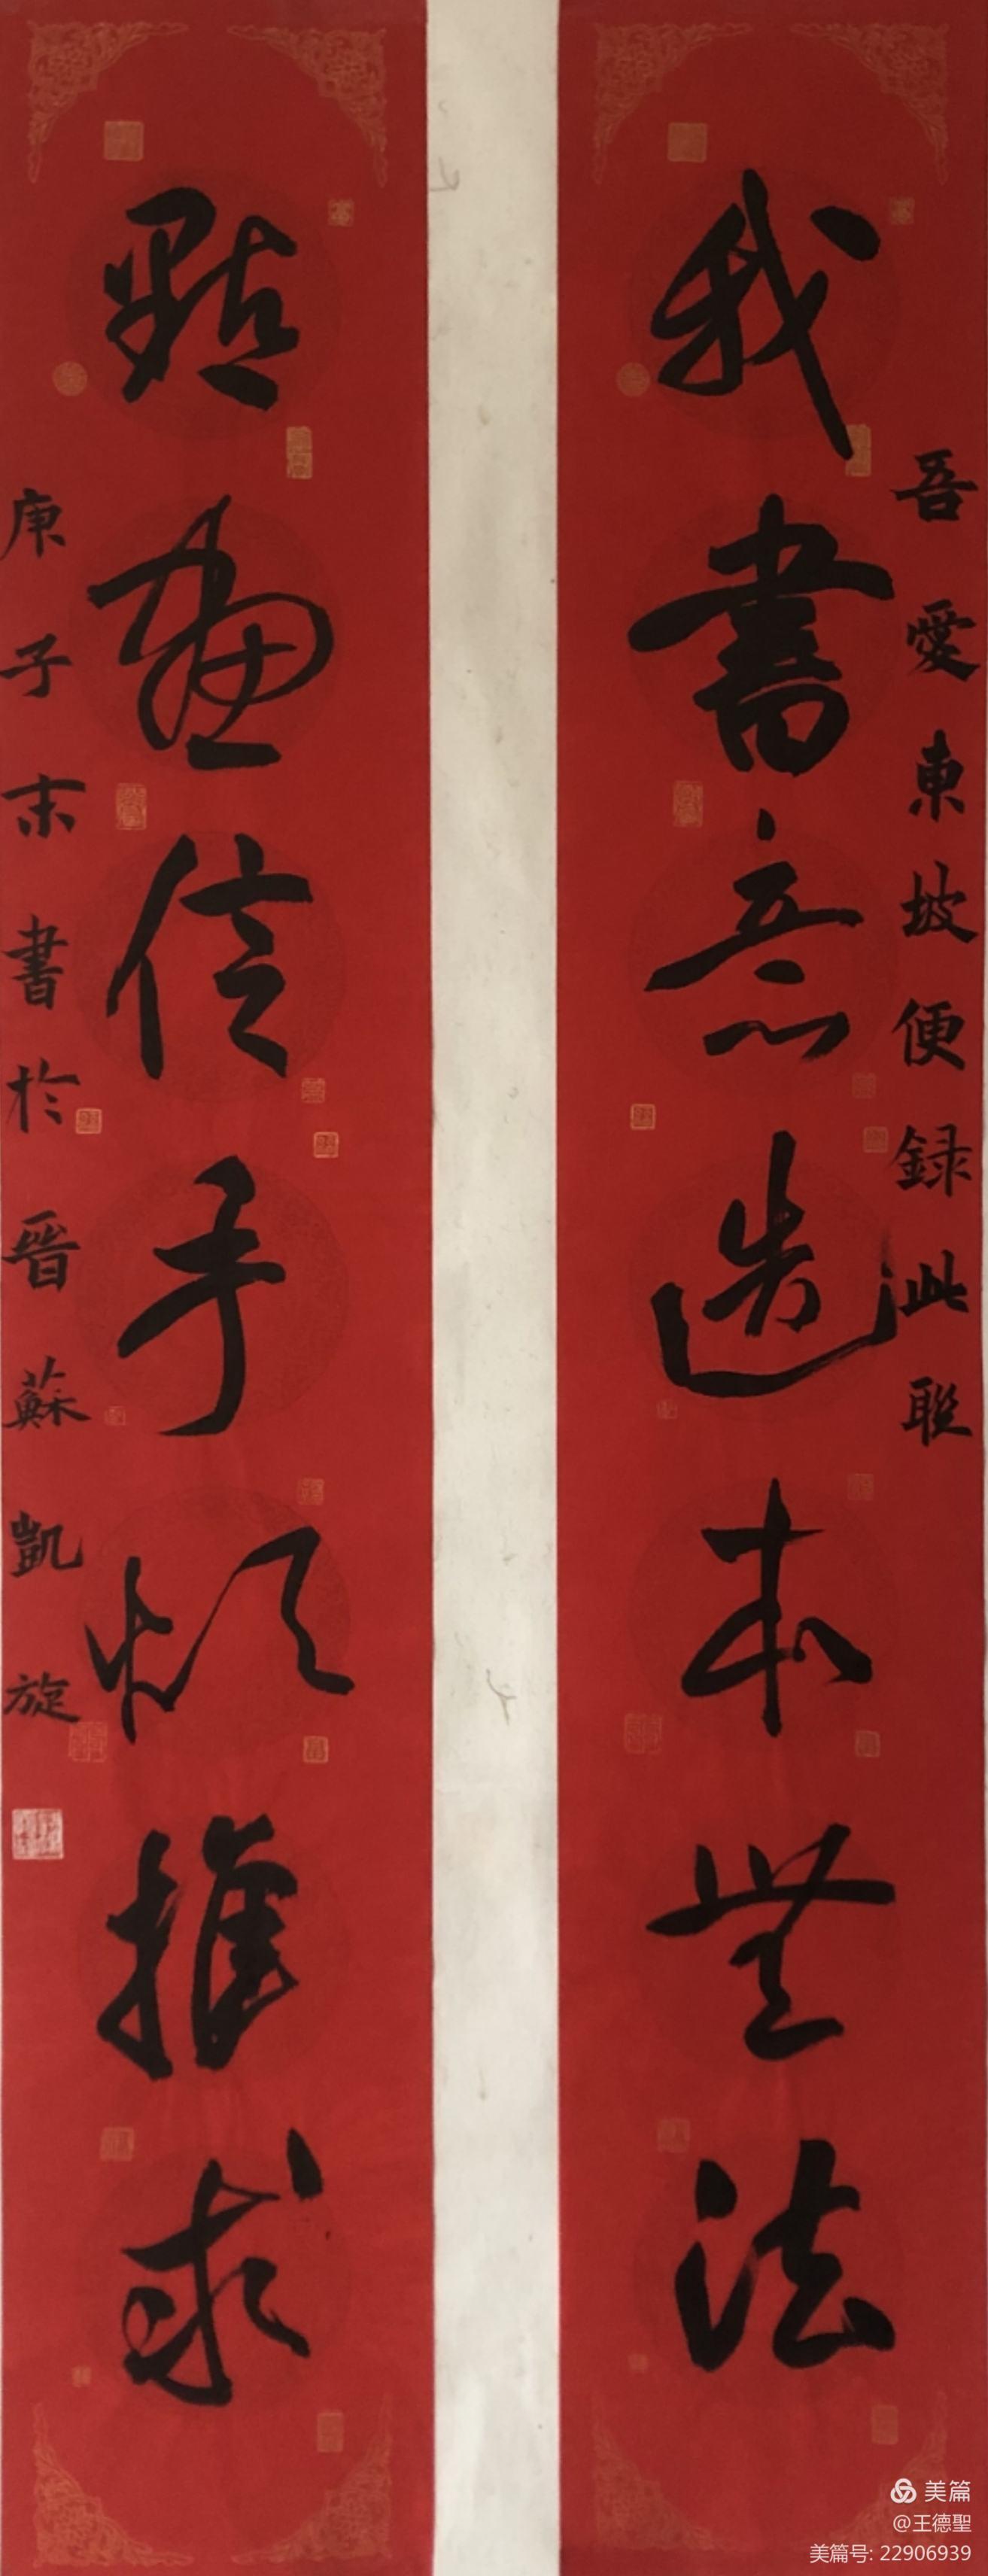 吾愛東坡便録此聯
我書意造本無法
點畫信手煩推求
庚子末書於晉蘇凱旋
美篇
@王德聖
美篇号: 22906939